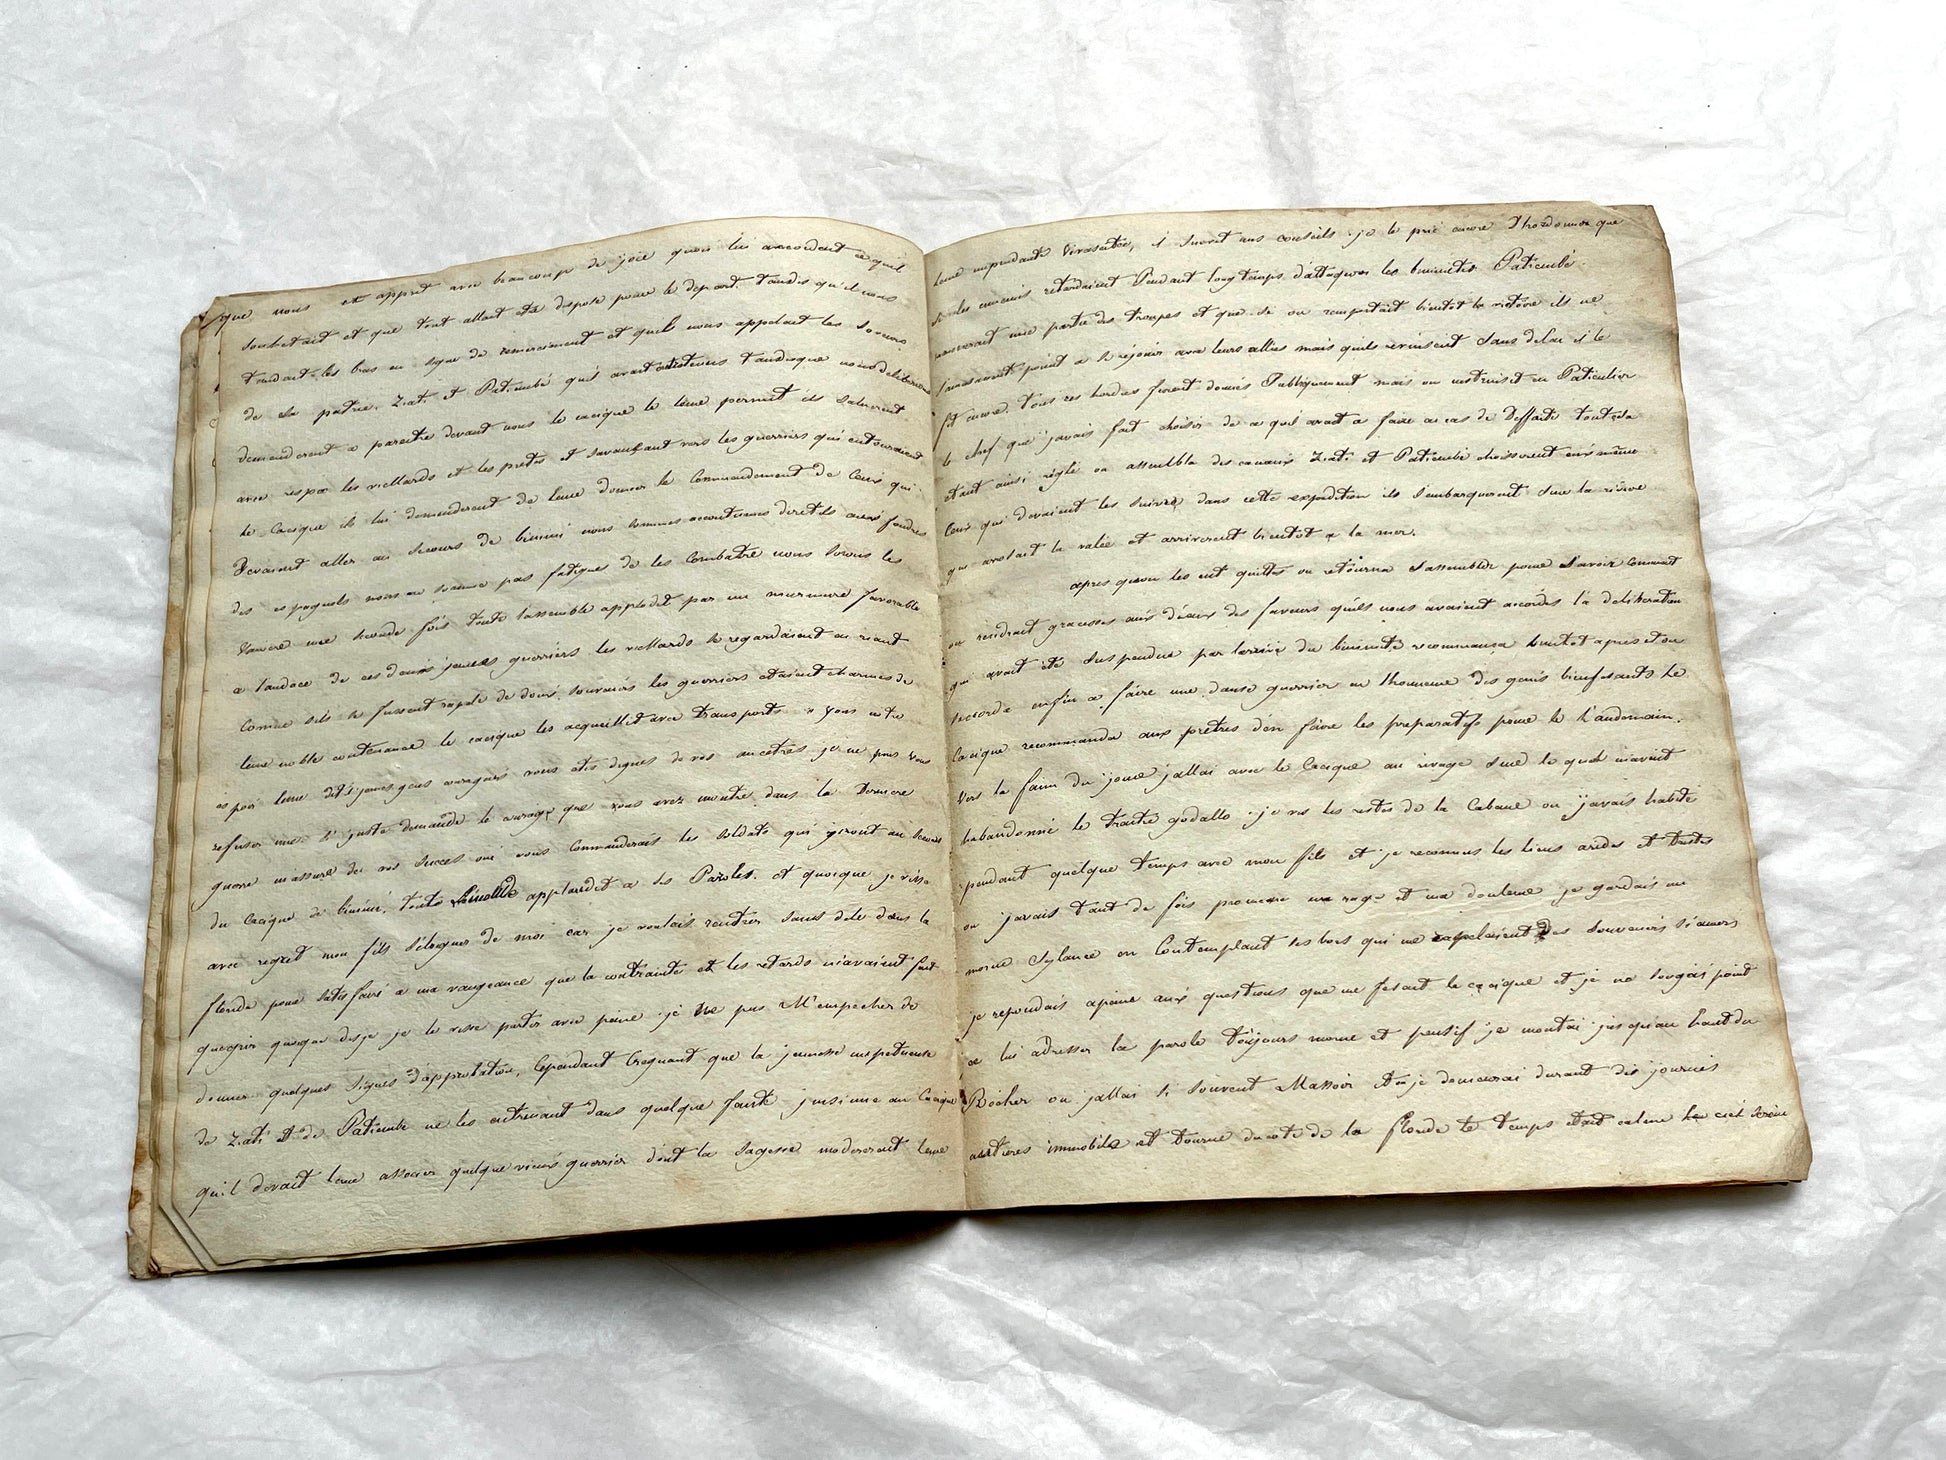 que nous et apprit avec beaucoup de joie quon lui accordait ce quil
souhetait et que tout allait etre dispose pour le depart. tandis qu'il nous
tendait les bras en signe de remerciment et quil nous appelait les sauveurs
de sa patrie. Ziati et Patiembé qui avait tandisque nous deliberions
demanderent a paraitre devant nous le cacique le leur permit ils saluerent
avec respec les viellards et les pretres et savançant vers les guerriers qui entouraient
le Cacique ils lui demanderent de leur donner le Commandement de Ceux qui
devaient aller au secours de bimini nous sommes accoutumes dirent ils aux foudres
des espagnols nous ne somme pas fatigues de les Combattre nous sorons les
Vaincre une seconde fois toute lassemble applodit par un murmure favorable
a laudace de ces deux jeunes guerriers les viellards le regardaient en riant
Comme sils le fussent rapele de doux souvenirs les guerriers etaient charmes de
leur noble contenance le cacique les acqueillit avec transports
espoir leur dit jeunes gens couragux vous etes dignes de vos ancetres je ne puis vous
refuser une si juste demande le courage que vous avez montre dans la Derniere
guerre massure de vos succes oui vous Commanderais les soldats qui yront au secours
du Cacique de bimini. toute applaudit a ses Paroles. et quoique je visse
avec regret mon fils s'eloigner de moi car je voulais rentrer sans dela dans la
floride pour satisfaire a ma vangeance que la contrainte et les retards n'avaient fait
quaigrir quoique disje je le visse partir avec peine je ne pus M'empecher de
donner quelques signes d'approbation. Cependant Craignant que la jeunesse impetueuse
de Ziati et de Patiembe ne les entrenant dans quelque faute j'insinue au Cacique
qu'il devait leur associer quelque vieux guerrier dont la sagesse modererait leur
leur imprudente Vivacitée, il suivit mes conseils je le prie encore d'hordonner que
si les ennemis retardaient Pendant longtemps d'attaquer les biminites Patiembé
une partie des troupes et que si on remportait bientot la victoire ils ne
point a se rejouir avec leurs allies mais quils revinsent sans delai il le
fit encore. tous ces hordres furent donnés Publiquement mais on instruisit en Particulier
le chef que j'avais fait choisir de ce quil avait a faire au cas de Deffaite toutsela
etant ainsi réglé on assembla des canaux Ziati et Patiembé choisirent eux même
Ceux qui devaient les suivre dans cette expedition ils s'embarquerent sur la riviere
qui arrosait la valée et arriverent bientot a la mer.
apres quon les eut quittes on retourna s'assembler pour savoir Comment
on rendrait graceses aux d'ieux des faveurs quils nous avaient accordés la deliberation
qui avait été suspendue par larrivé du biminite recommança bientot apres et on
saccorde enfin a faire une danse guerrier en lhonneur des genis bienfesants Le
Cacique recommanda aux prêtres d'en faire les preparatifs pour le landemain.
Vers la fain du jour jallai avec le Cacique au rivage sur le quel mavait
habandonné le traitre godallo je vis les restes de la Cabane ou j'avais habité
pendant quelque temps avec mon fils et je reconnus les lieux arides et tristes
ou javais tant de fois promener ma rage et ma douleur je gardais un
morne sylance en Contemplant ses bors qui me rapelaient des souvenirs si amers
je repondais apeine aux questions que me fesait le cacique et je ne songai point
a lui adresser la parole toujours morne et pensif je montai jusquau haut du
Rocher ou jallai si souvent Massoir et je demeurai durant dis journes
entieres immobile et tourne du coté de la floride le temps etait calme Le ciel serain